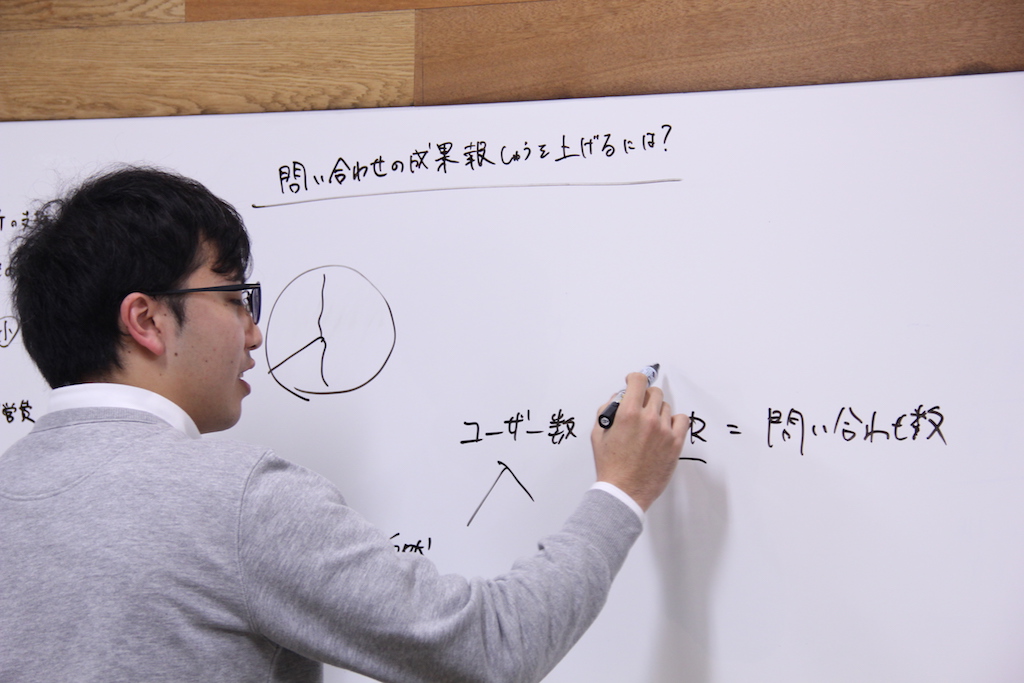 問い合わせの成果報しゅうを上げるには?
小
営費
ユーザー数 R = 問い合わせ数